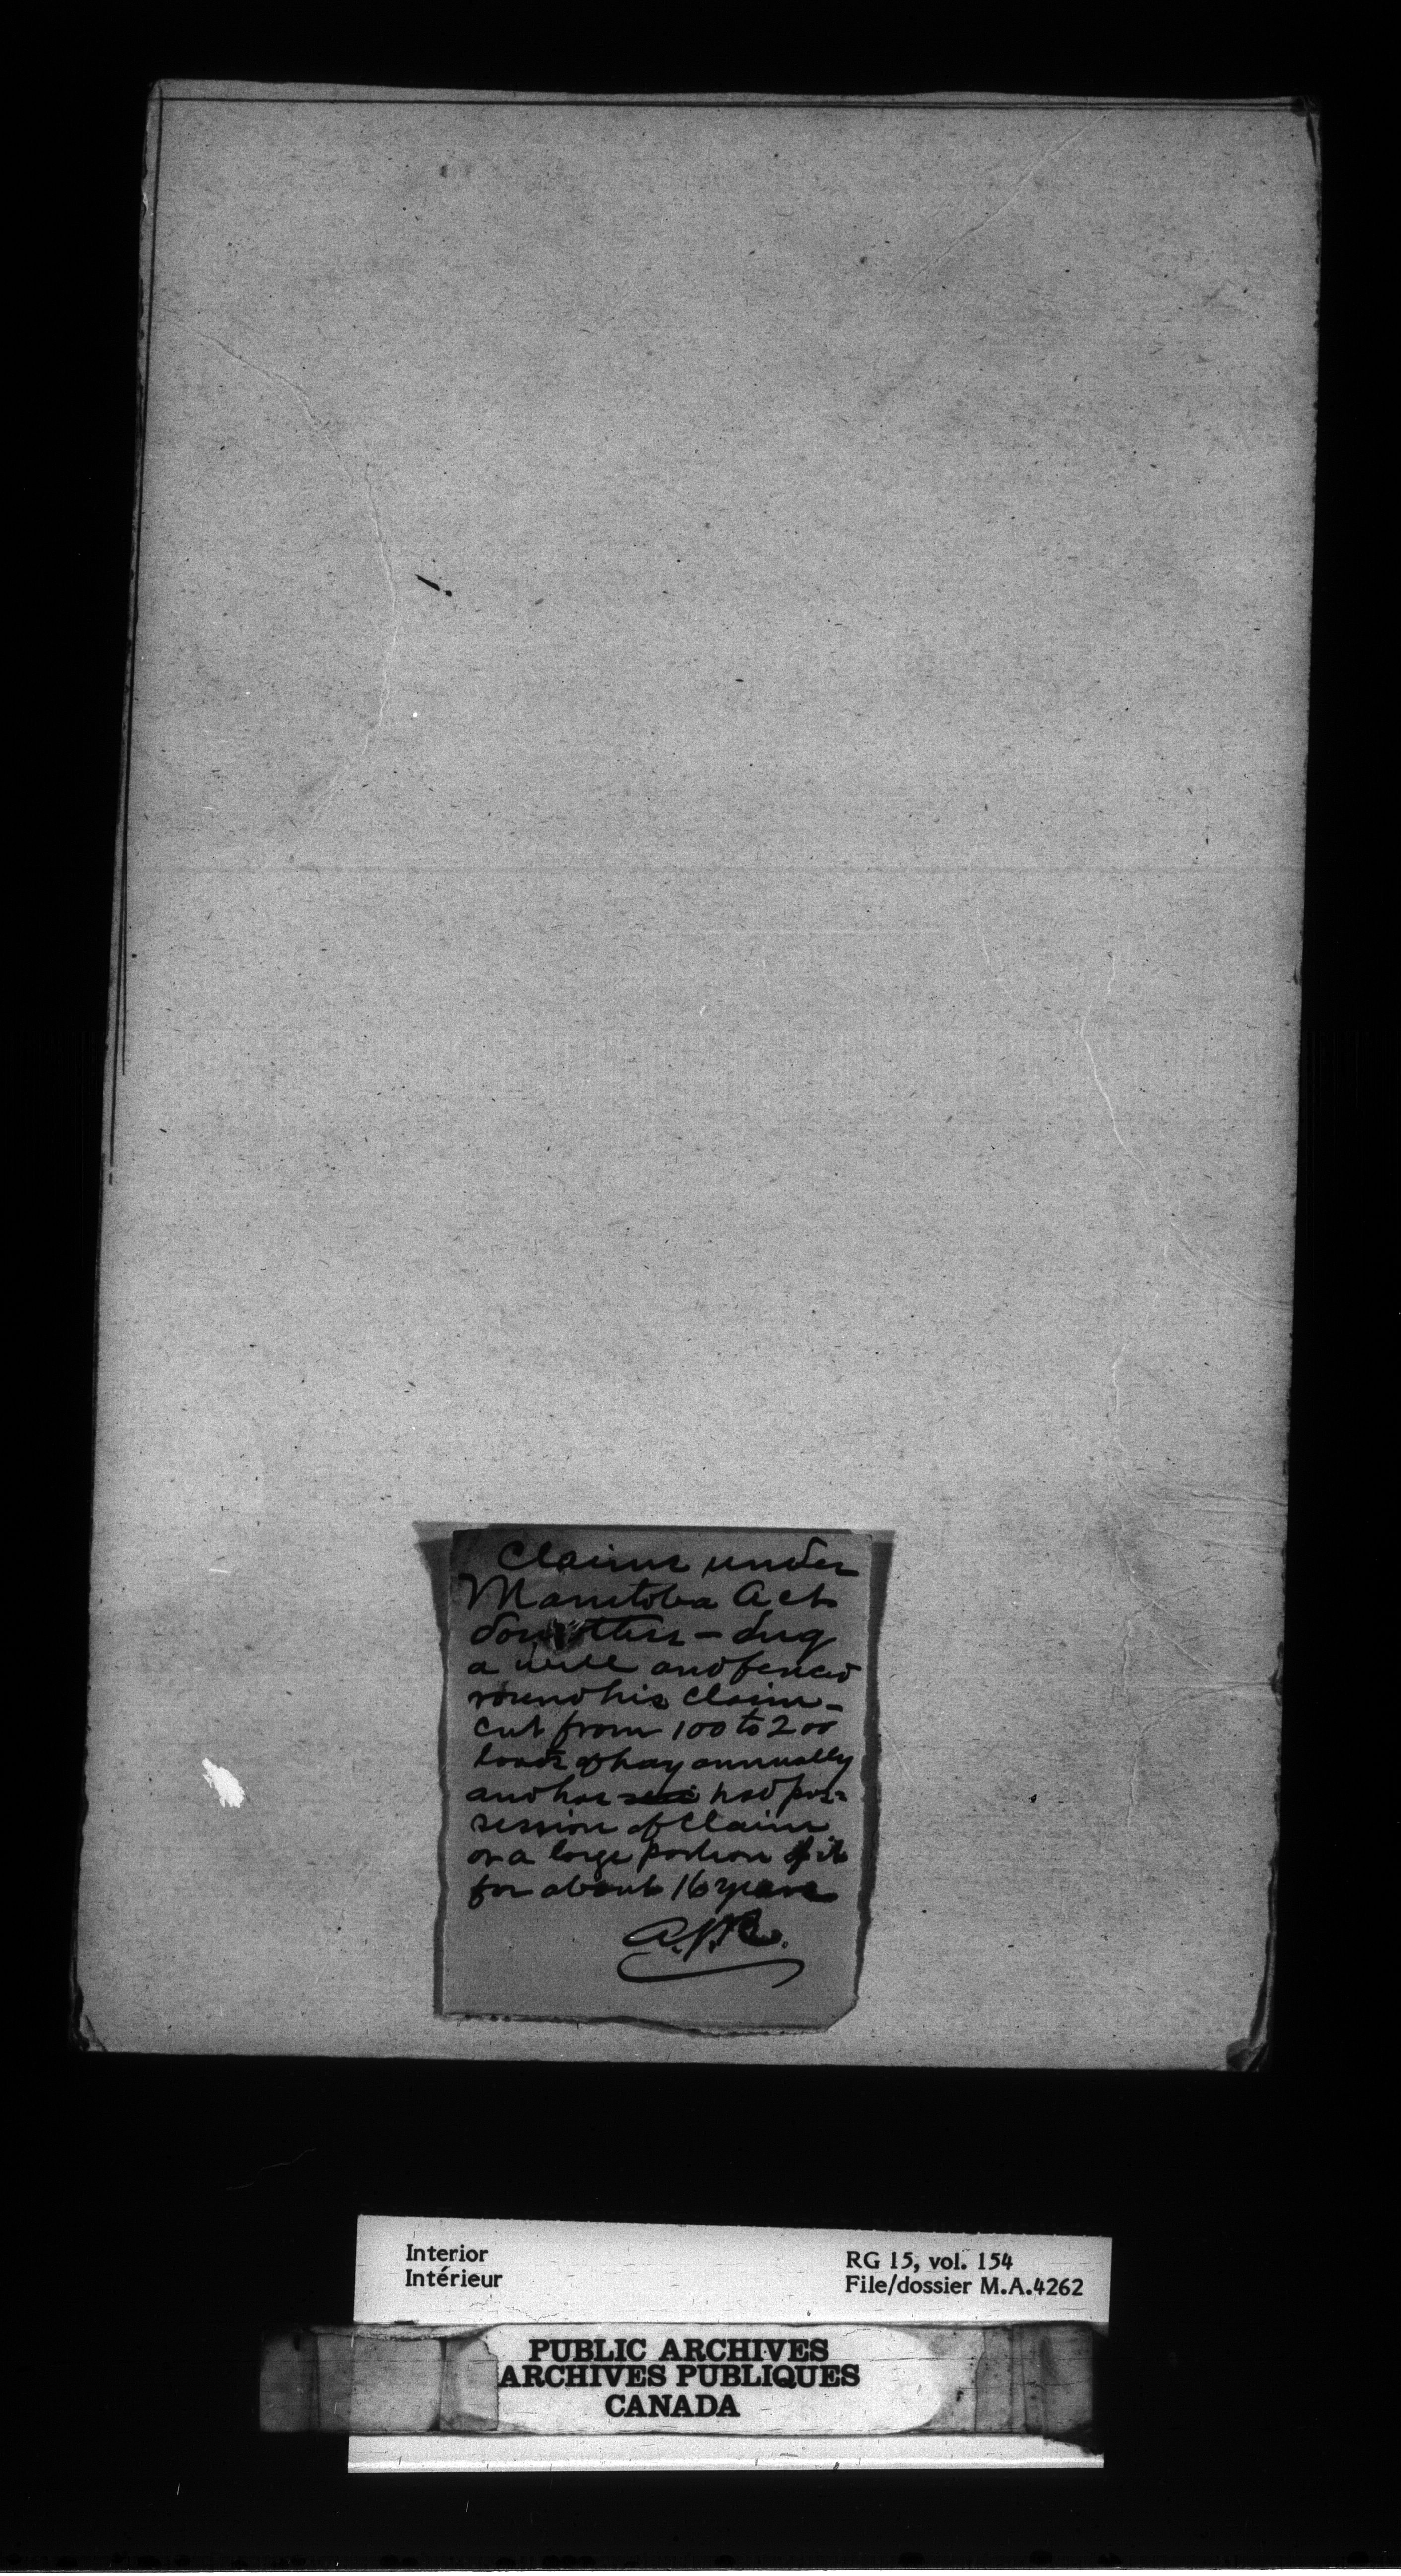 Claims under
Manitoba Act
dug
a well and fenced
round his claim -
cut from 100 to 200
loads of hay annually
and has had pos-
session of Claim
or a large portion of it
for about 16 years
Interior
Intérieur
RG 15, vol. 154
File/dossier M.A.4262
PUBLIC ARCHIVES
ARCHIVES PUBLIQUES
CANADA